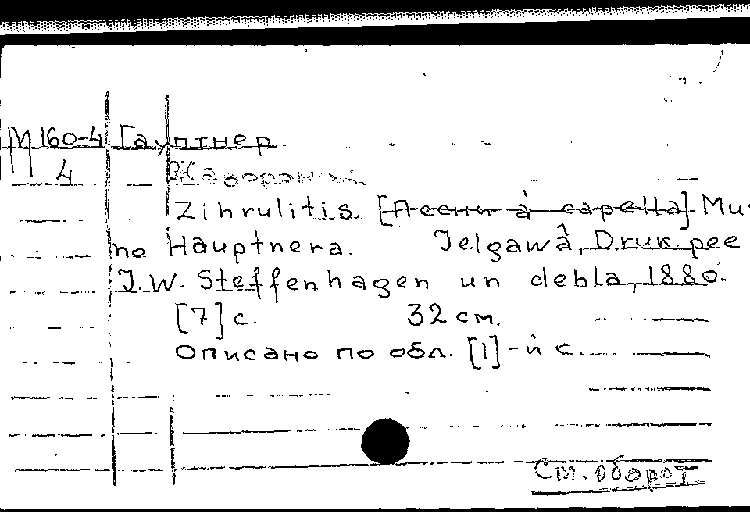 М160-4 Гауптнер
4 Жаворонок
Zihrulitis. [Песни à capella]. Mu-
no Hauptnera. Jelgawâ, Druk pee
J.W. Steffenhagen un dehla, 1880.
[7] с. 32 см.
Описано по обл. [1]-й с.
См. оборот